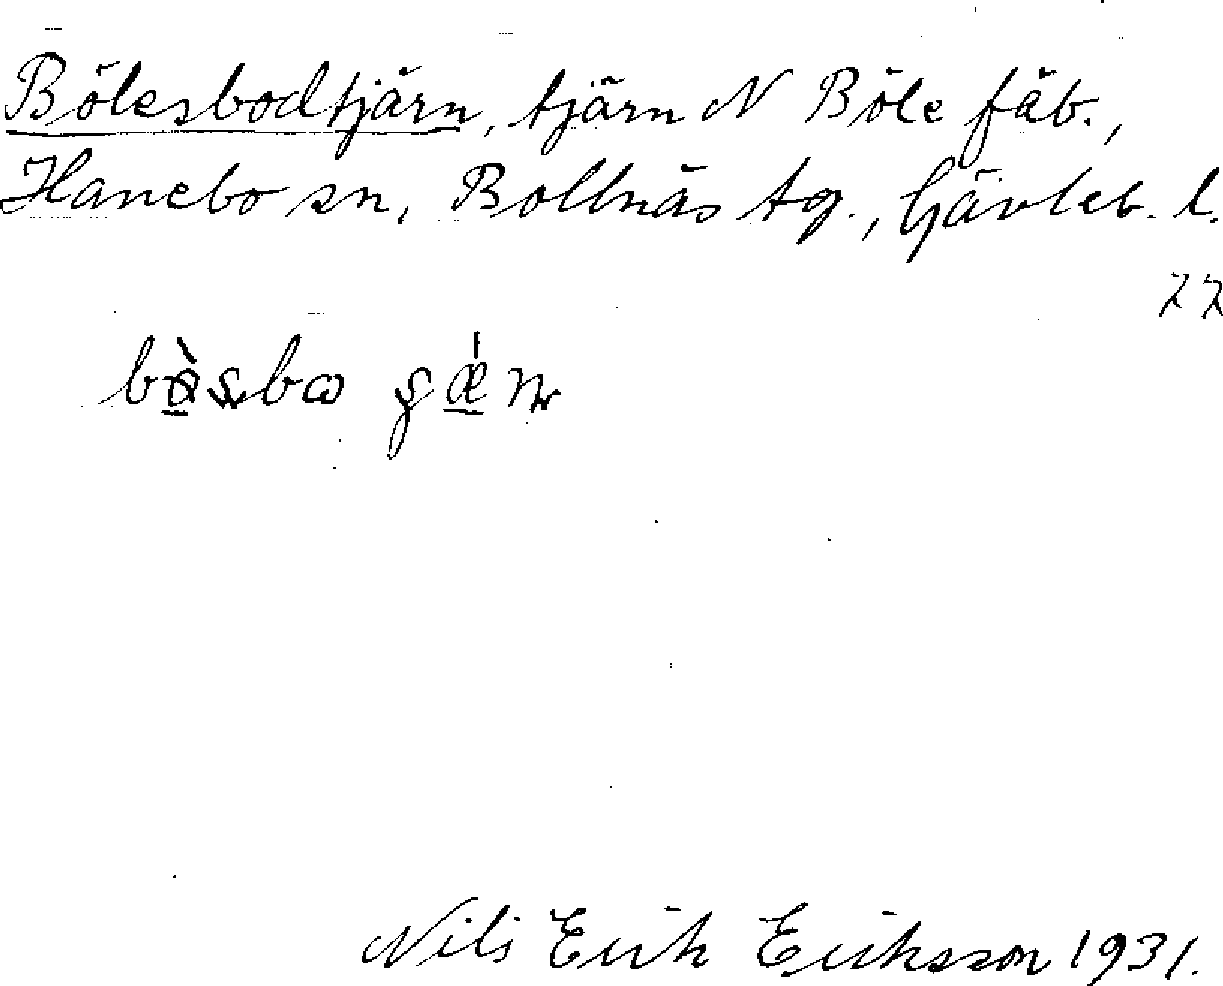 Bölesbodtjärn, tjärn N Böle fäb.,
Hanebo sn, Bollnäs tg., Gävleb. l.
Nils Erik Eriksson 1931.